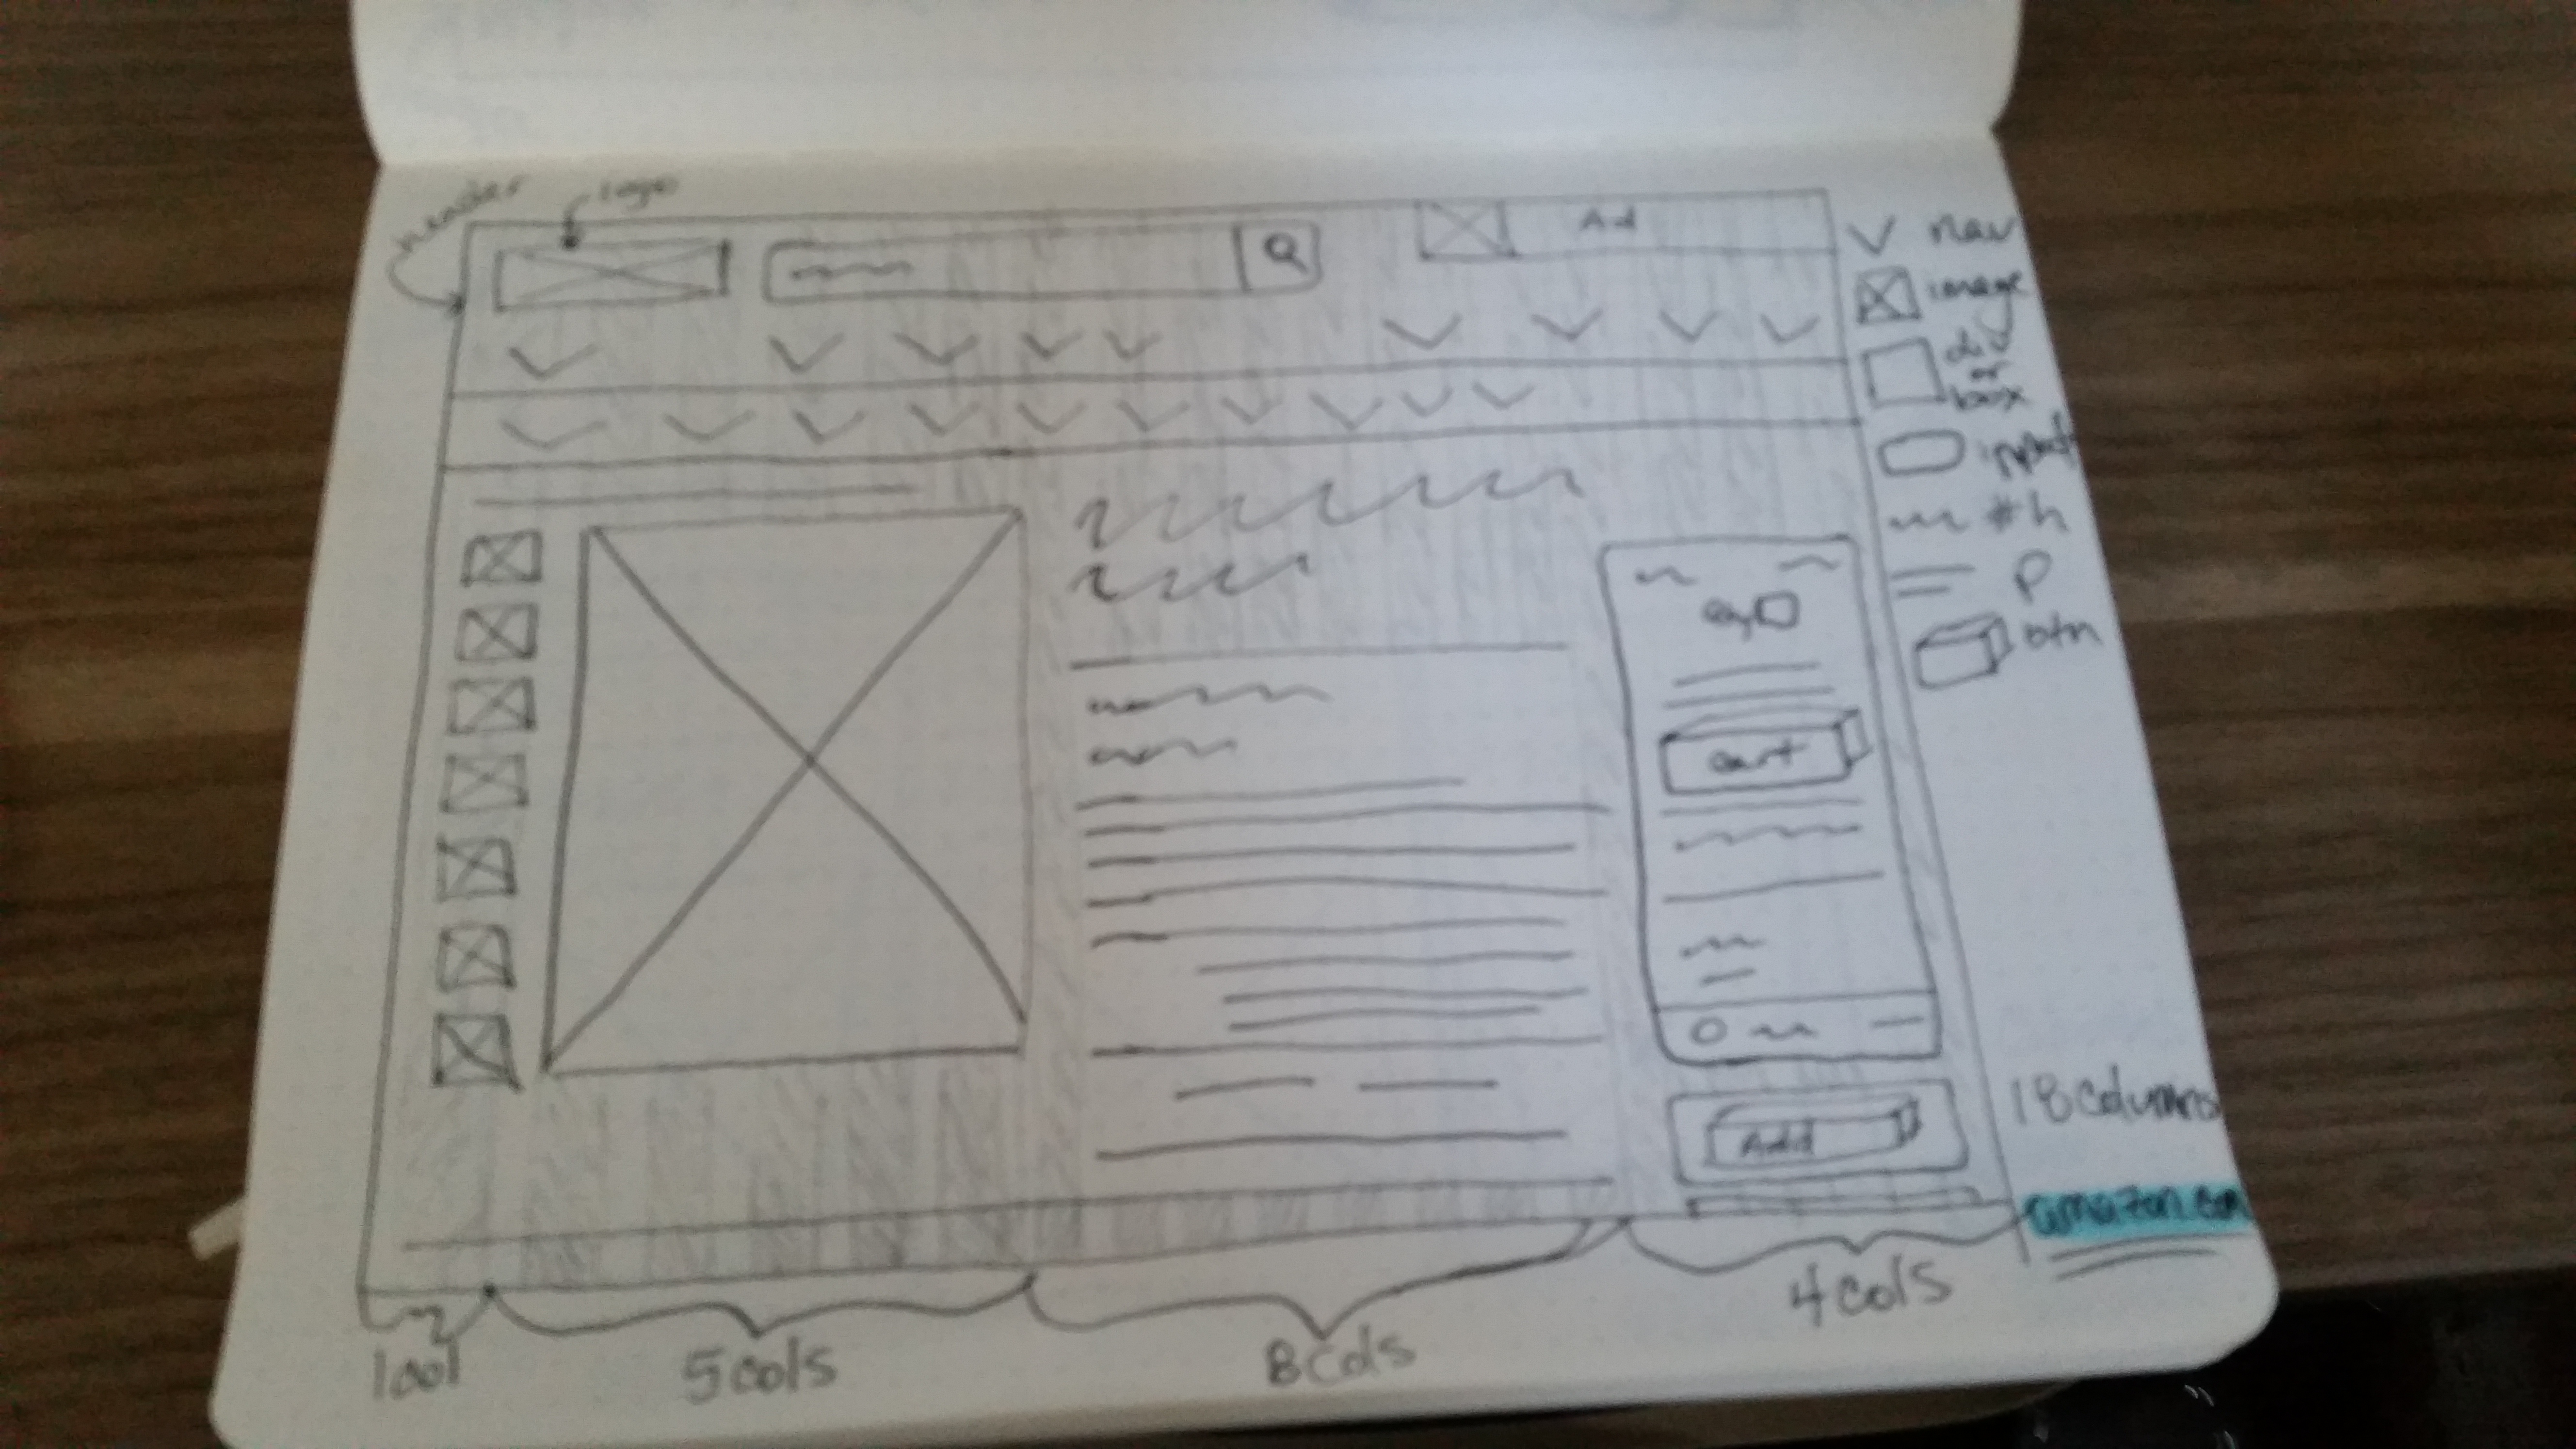 header
logo
Ad
nav
image
div
or
box
input
#h
p
btn
cart
Add
18 columns
amazon.com
1 col
5 cols
8 cols
4 cols